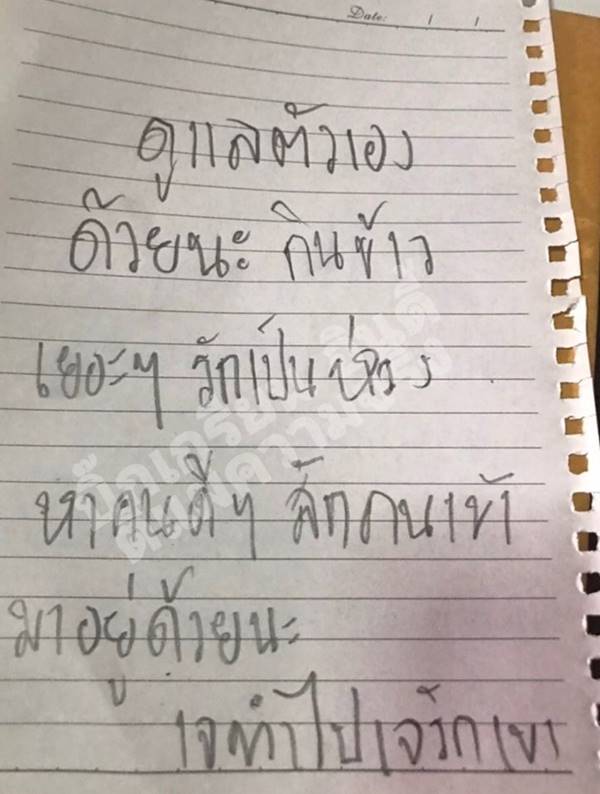 Date: / /
ดูแลตัวเอง
ด้วยนะ กินข้าว
เยอะๆ รักเป็นห่วง
หาคนดีๆ สักคนเข้า
มาอยู่ด้วยนะ
เจทำไปเจรักเขา